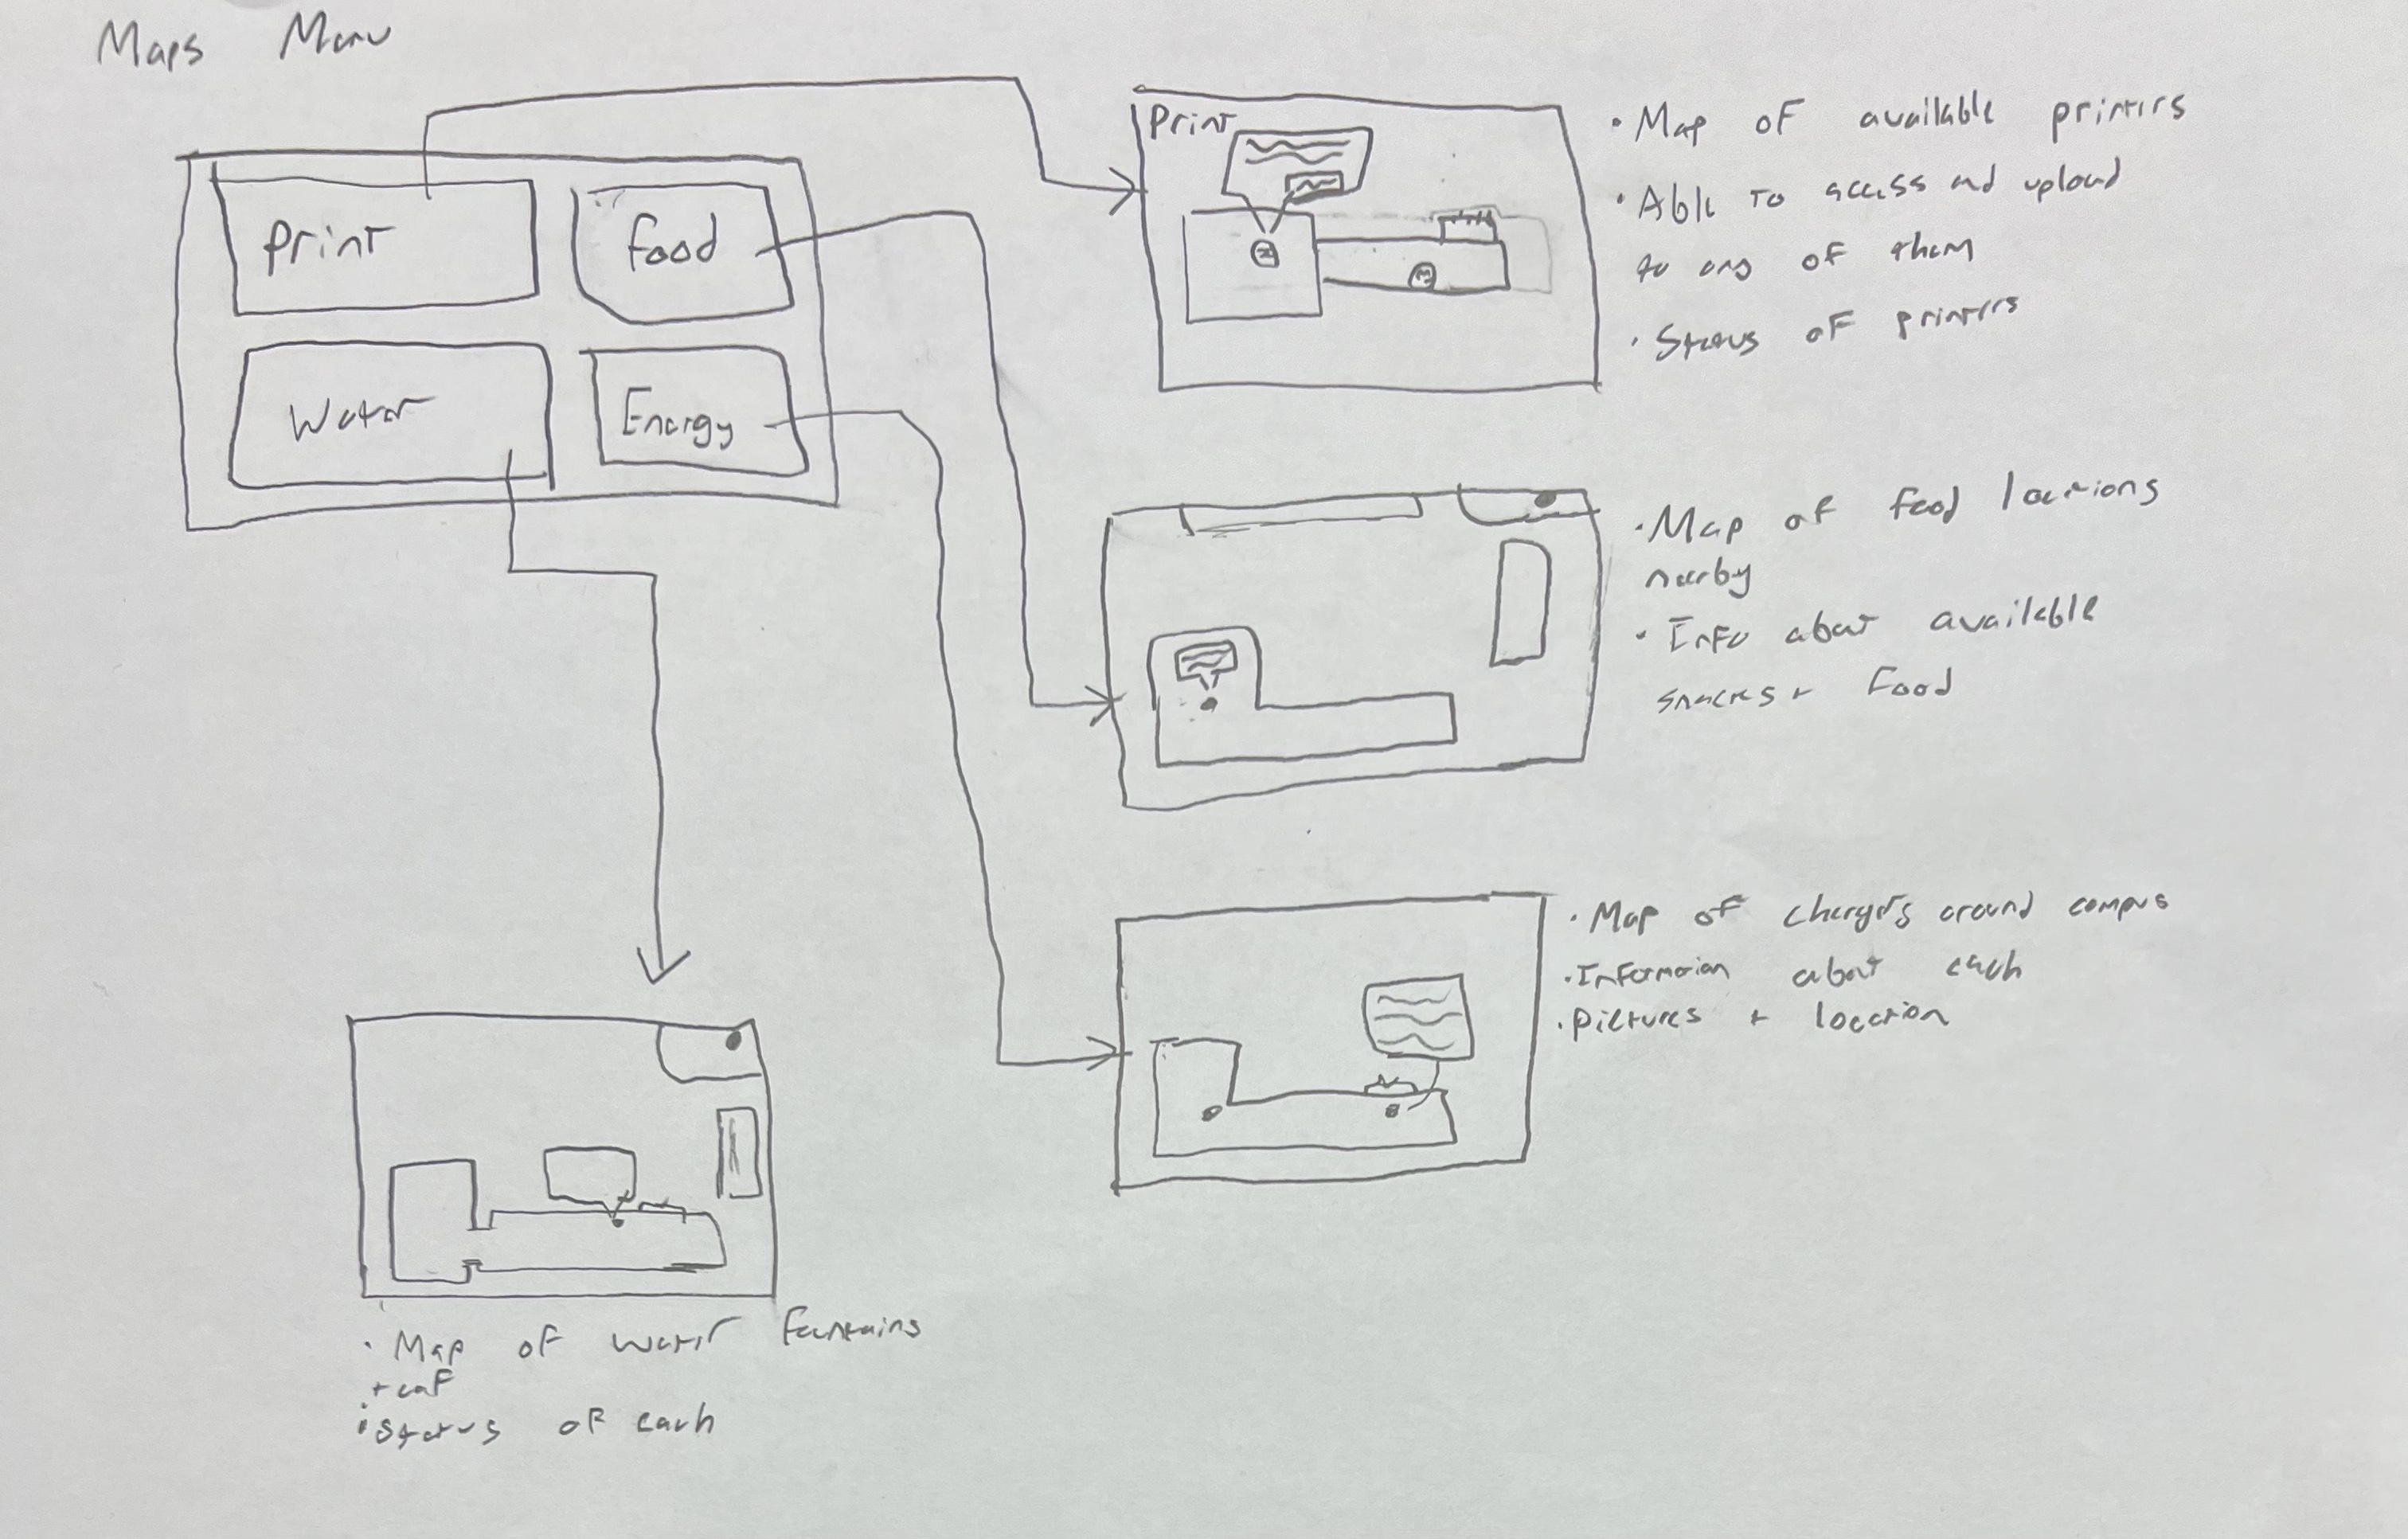 Maps Menu
Print
Food
Water
Energy
Print
• Map of available printers
• Able to access and upload
to any of them
• Status of printers
• Map of food locations
nearby
• Info about available
snacks + food
• Map of chargers around campus
• Information about each
• pictures + location
• Map of water fountains
+ caf
• Status of each